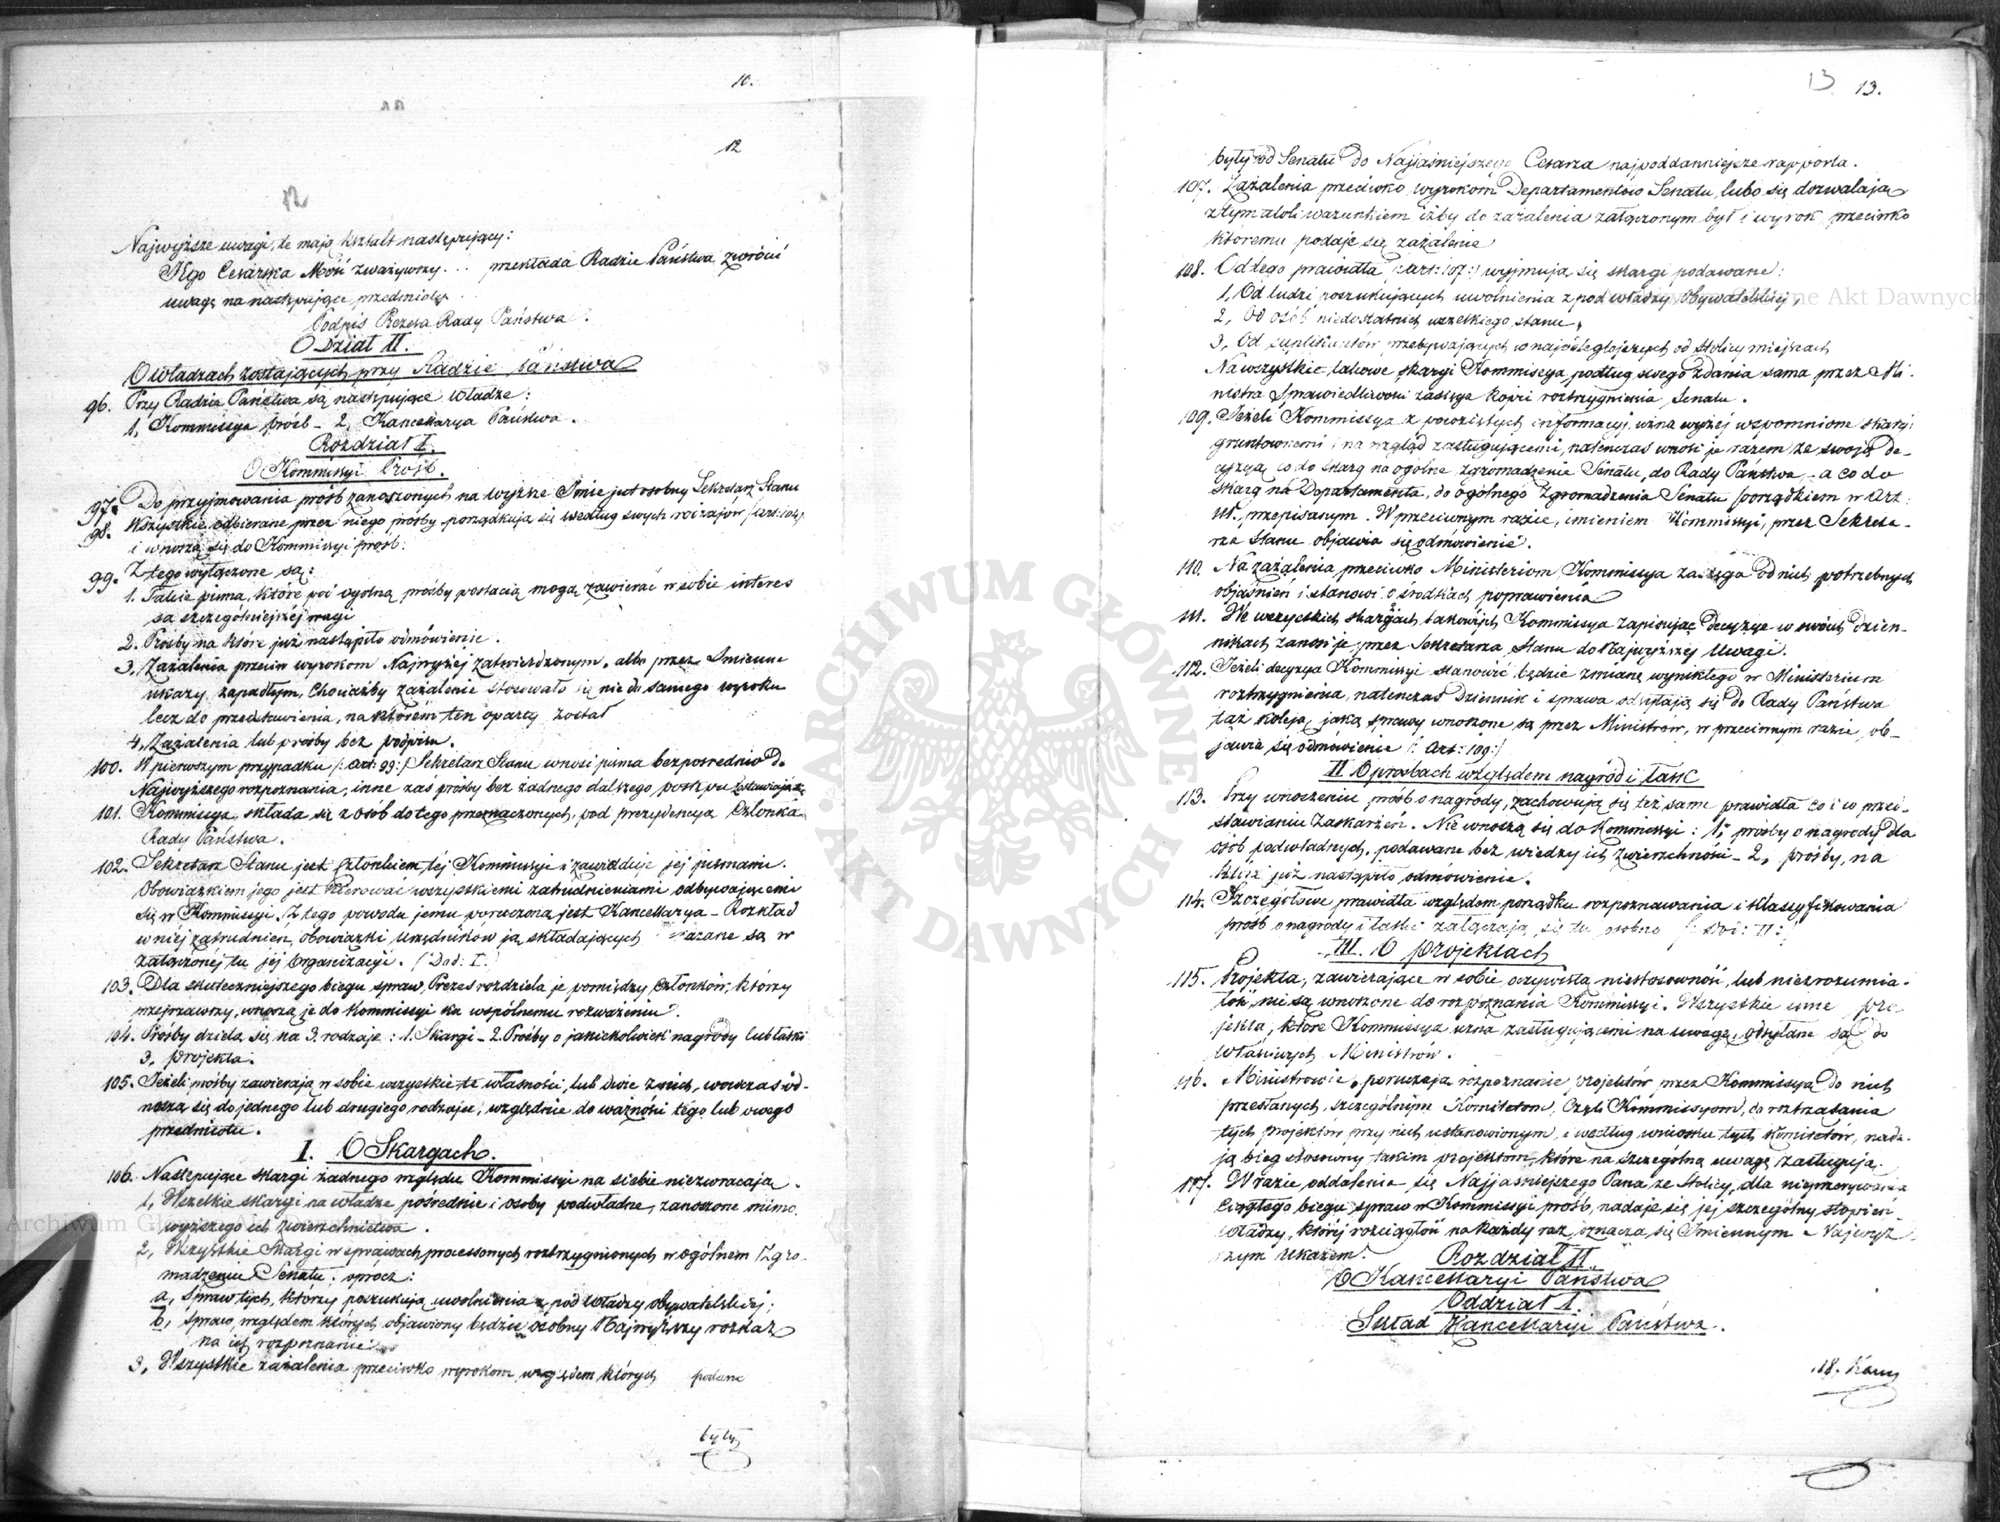 10.
12
12
Najwyższe uwagi, te mają kształt następujący:
Jego Cesarska Mość zważywszy ... przekłada Radzie Państwa zwrócić
uwagę na następujące przedmioty ..
Podpis Prezesa Rady Państwa.
Odział II.
O władzach zostających przy Radzie Państwa
96. Przy Radzie Państwa są następujące władze:
1, Kommissya próśb – 2, Kancellarya Państwa.
Rozdział I.
O Kommissyi Próśb.
97. Do przyjmowania próśb zanoszonych na wyższe Imie jest osobny Sekretarz Stanu
98. Wszystkie odbierane przez niego prośby porządkują się według swych rodzajów /:art: 104:/
i wnoszą się do Kommissyi próśb:
99. Z tego wyłączone są:
1. Takie pisma, które pod ogólną prośby postacią mogą zawierać w sobie interes
sa szczególniejszej wagi
2. Prośby na które już nastąpiło odmówienie.
3, Zażalenia przeciw wyrokom Najwyżej zatwierdzonym, albo przez Imienne
ukazy zapadłym, Chociażby zażalenie stosowało się nie do samego wyroku
lecz do przedstawienia, na którém ten oparty został
4, Zażalenia lub prośby bez podpisu.
100. W pierwszym przypadku /: art: 99:/ Sekretarz Stanu wnosi pisma bezpośrednio do
Najwyższego rozpoznania, inne zaś prośby bez żadnego dalszego postępu zostawiają się
101. Kommissya, składa się z osób do tego przeznaczonych, pod prezydencya Członka
Rady Państwa.
102. Sekretarz Stanu jest Członkiem téj Kommissyi i zawiaduje jej pismami.
Obowiązkiem jego jest kierować wszystkiemi zatrudnieniami odbywającemi
się w Kommissyi. Z tego powodu jemu poruczoną jest Kancellarya – Rozkład
w niéj zatrudnień, obowiązki, urzędników ją składających są w
załączonej tu jéj Organizacyi. /: Dod: I.
103. Dla skuteczniejszego biegu spraw, Prezes rozdziela je pomiędzy Członków, którzy
przejrzawszy, wnoszą je do Kommissyi ku wspólnemu rozważeniu.
104. Prośby dzielą się na 3. rodzaje: 1. Skargi – 2. Prośby o jakiekolwiek nagrody lub łaski
3, projekta.
105. Jeżeli prośby zawierają w sobie wszystkie te własności, lub dwie z nich, wówczas od-
noszą się do jednego lub drugiego rodzaju, względnie do ważności tego lub owego
przedmiotu.
I. O Skargach.
106. Następujące skargi żadnego względu Kommissyi na siebie niezwracają.
1, Wszelkie skargi na władze pośrednie i osoby podwładne, zanoszone mimo
wyższego ich zwierzchnictwa.
2, Wszystkie Skargi w sprawach processowych roztrzygnionych w ogólném Zgro-
madzeniu Senatu; oprócz:
a, spraw tych, którzy poszukują uwolnienia z pod władzy obywatelskiej;
b, spraw, względem których objawiony będzie osobny Najwyższy rozkaz
na ich rozpoznanie
3, Wszystkie zażalenia przeciwko wyrokom względem których podane
były
13 13.
były od Senatu do Najjaśniejszego Cesarza najpoddanniejsze rapporta.
107. Zażalenia przeciwko wyrokom Departamentów Senatu, lubo się dozwalają
z tym atoli warunkiem iżby do zażalenia załączonym był i wyrok przeciwko
któremu podaje się zażalenie
108. Od tego prawidła /:art: 107:/ wyjmują się skargi podawane:
1, Od ludzi poszukujących uwolnienia z pod władzy Obywatelskiej,
2, Od osób niedostatnich wszelkiego stanu,
3, Od suplikantów przebywających w najodleglejszych od stolicy miejscach
Na wszystkie takowe skargi Kommissya podług swego zdania sama przez Mi-
nistra Sprawiedliwości zasięga kopii roztrzygnienia Senatu.
109. Jeżeli Kommissya z powziętych informacyi uzna wyżej wspomnione skargi
gruntownemi i na wzgląd zasługującemi, natenczas wnosi je razem ze swoją de-
cyzyą co do skarg na ogólne zgromadzenie Senatu, do Rady Państwa – a co do
skarg na Departamenta, do ogólnego Zgromadzenia Senatu porządkiem w Art:
111. przepisanym. W przeciwnym razie, imieniem Kommissyi, przez Sekreta-
rza Stanu objawia się odmówienie.
110. Na zażalenia przeciwko Ministeriom Kommissya zasięga od nich potrzebnych
objaśnień i stanowi o środkach poprawienia
111. We wszystkich skargach takowych Kommissya zapisując decyzye w swoich dzien-
nikach zanosi je przez Sekretarza Stanu do Najwyższej Uwagi.
112. Jeżeli decyzya Kommissyi stanowić będzie zmianę wynikłego w Ministerium
roztrzygnienia, natenczas Dziennik i sprawa odsyłają się do Rady Państwa
taż koleją, jaką sprawy wnoszone są przez Ministrów, w przeciwnym razie, ob-
jawia się odmówienie /: Art: 109:/
II O prośbach względem nagród i łask
113. Przy wnoszeniu próśb o nagrody, zachowują się też same prawidła co i w przed-
stawianiu Zaskarżeń. Nie wnoszą się do Kommissyi: 1, prośby o nagrody dla
osób podwładnych, podawane bez wiedzy ich zwierzchności – 2, prośby, na
które już nastąpiło odmówienie.
114. Szczegółowe prawidła względem porządku rozpoznawania i klassyfikowania
próśb o nagrody i łaski załączają się tu osobno /: Dod: II:/
III. O projektach
115. Projekta, zawierające w sobie oczywistą niestosowność, lub niezrozumia-
łość, nie są wnoszone do rozpoznania Kommissyi. Wszystkie inne pro-
jekta, które Kommissya uzna zasługującemi na uwagę, odsyłane są do
właściwych Ministrów.
116. Ministrowie, poruczają rozpoznanie projektów przez Kommissyą do nich
przesłanych, szczególnym Komitetom, Czyli Kommissyom, do roztrząsania
tych projektów przy nich ustanowionym, i według wniosku tych Komitetów, nada-
ją bieg stosowny takim projektom, które na szczególną uwagę zasługują.
117. W razie oddalenia się Najjaśniejszego Pana ze Stolicy, dla nieprzerywania
ciągłego biegu spraw w Kommissyi próśb, nadaje się jej szczególny stopień
władzy, której rozciągłość na każdy raz, oznacza się Imiennym Najwyż-
szym Ukazem.
Rozdział II.
O Kancellaryi Państwa
Oddział I.
Skład Kancellaryi Państwa.
118. Kanc
Archiwum Główne Akt Dawnych
ARCHIWUM GŁÓWNE AKT DAWNYCH